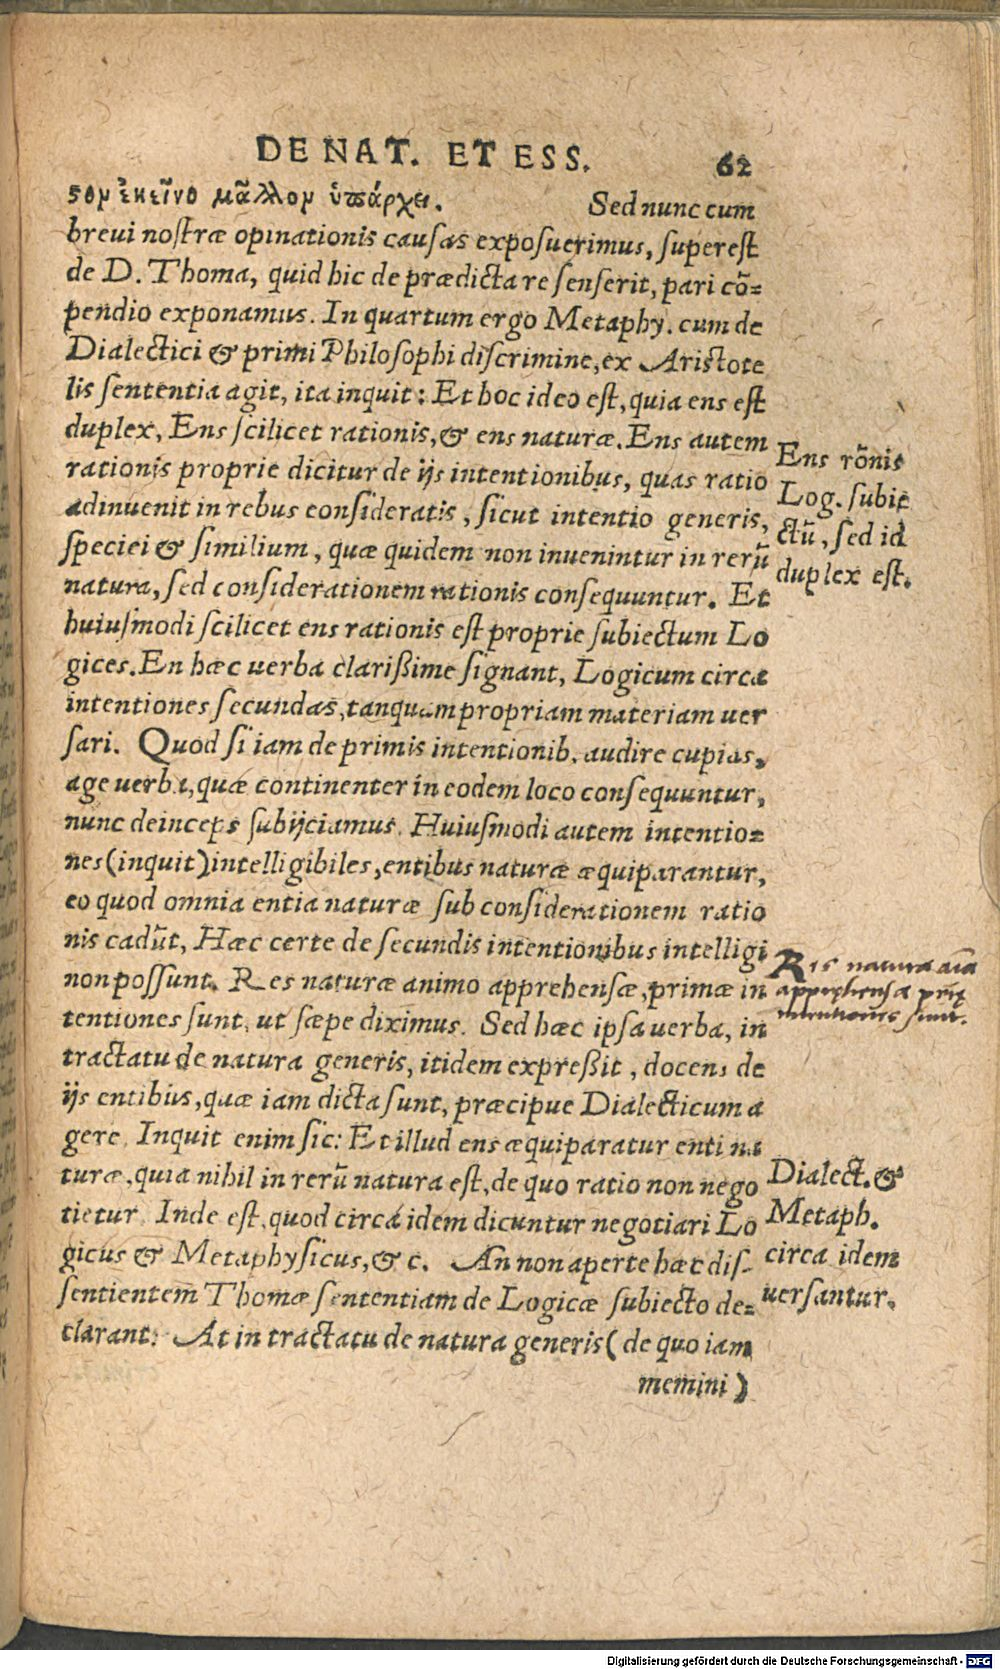 DE NAT. ET ESS. 62
ϛον ἐκεῖνο μᾶλλον ὑπάρχει. Sed nunc cum
breui nostræ opinationis causas exposuerimus, superest
de D. Thoma, quid hic de prædicta re senserit, pari cõ=
pendio exponamus. In quartum ergo Metaphy. cum de
Dialectici & primi Philosophi discrimine, ex Aristote
lis sententia agit, ita inquit: Et hoc ideo est, quia ens est
duplex, Ens scilicet rationis, & ens naturæ. Ens autem
rationis proprie dicitur de ijs intentionibus, quas ratio
adinuenit in rebus consideratis, sicut intentio generis,
speciei & similium, quæ quidem non inuenintur in rerũ
natura, sed considerationem rationis consequuntur. Et
huiusmodi scilicet ens rationis est proprie subiectum Lo
gices. En hæc uerba clarißime signant, Logicum circa
intentiones secundas, tanquam propriam materiam uer
sari. Quod si iam de primis intentionib. audire cupias,
age uerba, quæ continenter in eodem loco consequuntur,
nunc deinceps subijciamus. Huiusmodi autem intentio=
nes (inquit) intelligibiles, entibus naturæ æquiparantur,
eo quod omnia entia naturæ sub considerationem ratio
nis cadũt, Hæc certe de secundis intentionibus intelligi
non possunt. Res naturæ animo apprehensæ, primæ in
tentiones sunt, ut sæpe diximus. Sed hæc ipsa uerba, in
tractatu de natura generis, itidem expreßit, docens de
ijs entibus, quæ iam dicta sunt, præcipue Dialecticum a
gere. Inquit enim sic: Et illud ens æquiparatur enti na
turæ, quia nihil in rerũ natura est, de quo ratio non nego
tietur. Inde est, quod circa idem dicuntur negotiari Lo
gicus & Metaphysicus, & c. An non aperte hæc dis-
sentientem Thomæ sententiam de Logicæ subiecto de=
clarant: At in tractatu de natura generis (de quo iam
memini)
Ens rõnis
Log. subie
ctũ, sed id
duplex est.
Res natura aĩa
apprehensa prię
intentiones sunt.
Dialect. &
Metaph.
circa idem
uersantur.
Digitalisierung gefördert durch die Deutsche Forschungsgemeinschaft - DFG